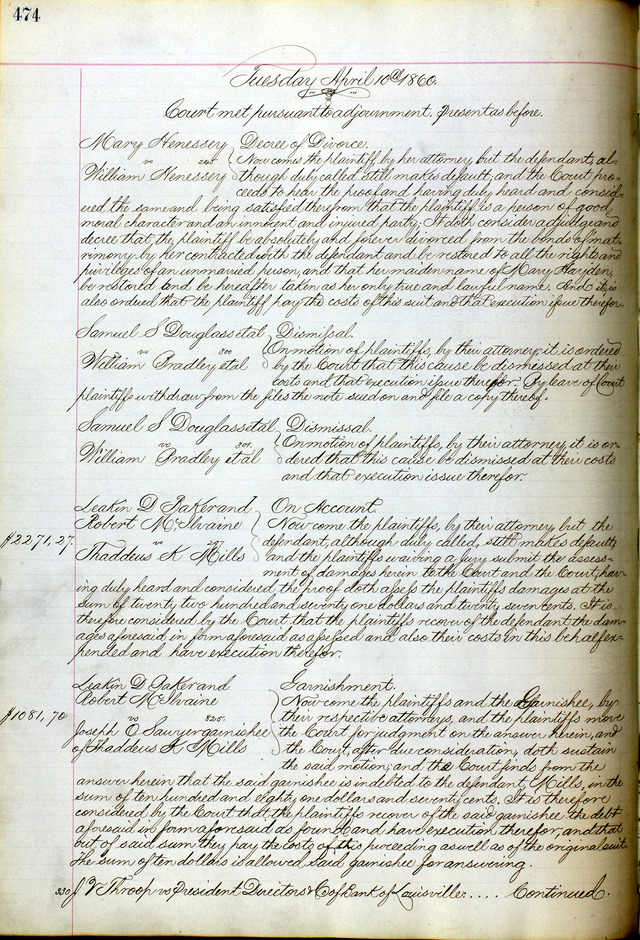 474
Tuesday April 10th 1860.
Court met pursuant to adjournment. Present as before.
Mary Henessey Decree of Divorce.
vs 245 Now comes the plaintiff by her attorney, but the defendant, al-
William Henessey though duly called still makes default, and the Court pro-
ceeds to hear the proof and having duly heard and consid-
ered the same and being satisfied therefrom that the plaintiff is a person of good
moral character and an innocent and injured party, It doth consider adjudge and
decree that the plaintiff be absolutely and forever divorced from the bonds of mat-
rimony by her contracted with the defendant and be restored to all the rights and
privileges of an unmarried person, and that her maiden name of Mary Hayden,
be restored and be hereafter taken as her only true and lawful name. And it is
also ordered that the plaintiff pay the costs of this suit and that execution issue therefor.
Samuel S Douglass et al Dismissal.
vs 300 On motion of plaintiffs, by their attorney, it is ordered
William Bradley et al by the Court that this cause be dismissed at their
costs and that execution issue therefor. By leave of Court
plaintiffs withdraw from the files the note sued on and file a copy thereof.
Samuel S Douglass et al Dismissal.
vs 301 On motion of plaintiffs, by their attorney, it is or-
William Bradley et al dered that this cause be dismissed at their costs
and that execution issue therefor.
Leakin D Baker and On Account.
Robert McIlvaine Now come the plaintiffs, by their attorney, but the
$2271,27. vs 297 defendant, although duly called, still makes default,
Thaddeus K Mills and the plaintiffs waiving a Jury submit the assess-
ment of damages herein to the Court and the Court, hav-
ing duly heard and considered the proof doth assess the plaintiffs damages at the
sum of twenty two hundred and seventy one dollars and twenty seven cents. It is
therefore considered by the Court that the plaintiffs recover of the defendant the dam-
ages aforesaid in form aforesaid as assessed and also their costs in this behalf ex-
pended and have execution therefor.
Leakin D Baker and Garnishment.
Robert McIlvaine Now come the plaintiffs and the Garnishee, by
$1081,70 vs their respective attorneys, and the plaintiffs move
Joseph O Sawyer garnishee the Court for judgment on the answer herein, and
of Thaddeus K Mills the Court, after due consideration, doth sustain
the said motion; and the Court finds from the
answer herein that the said garnishee is indebted to the defendant, Mills, in the
sum of ten hundred and eighty one dollars and seventy cents. It is therefore
considered by the Court that the plaintiffs recover of the said garnishee the debt
aforesaid in form aforesaid as found and have execution therefor, and that
out of said sum they pay the costs of this proceeding as well as of the original suit.
The sum of ten dollars is allowed said garnishee for answering.
330 J V Throop vs President Directors & Co of Bank of Louisville.... Continued.